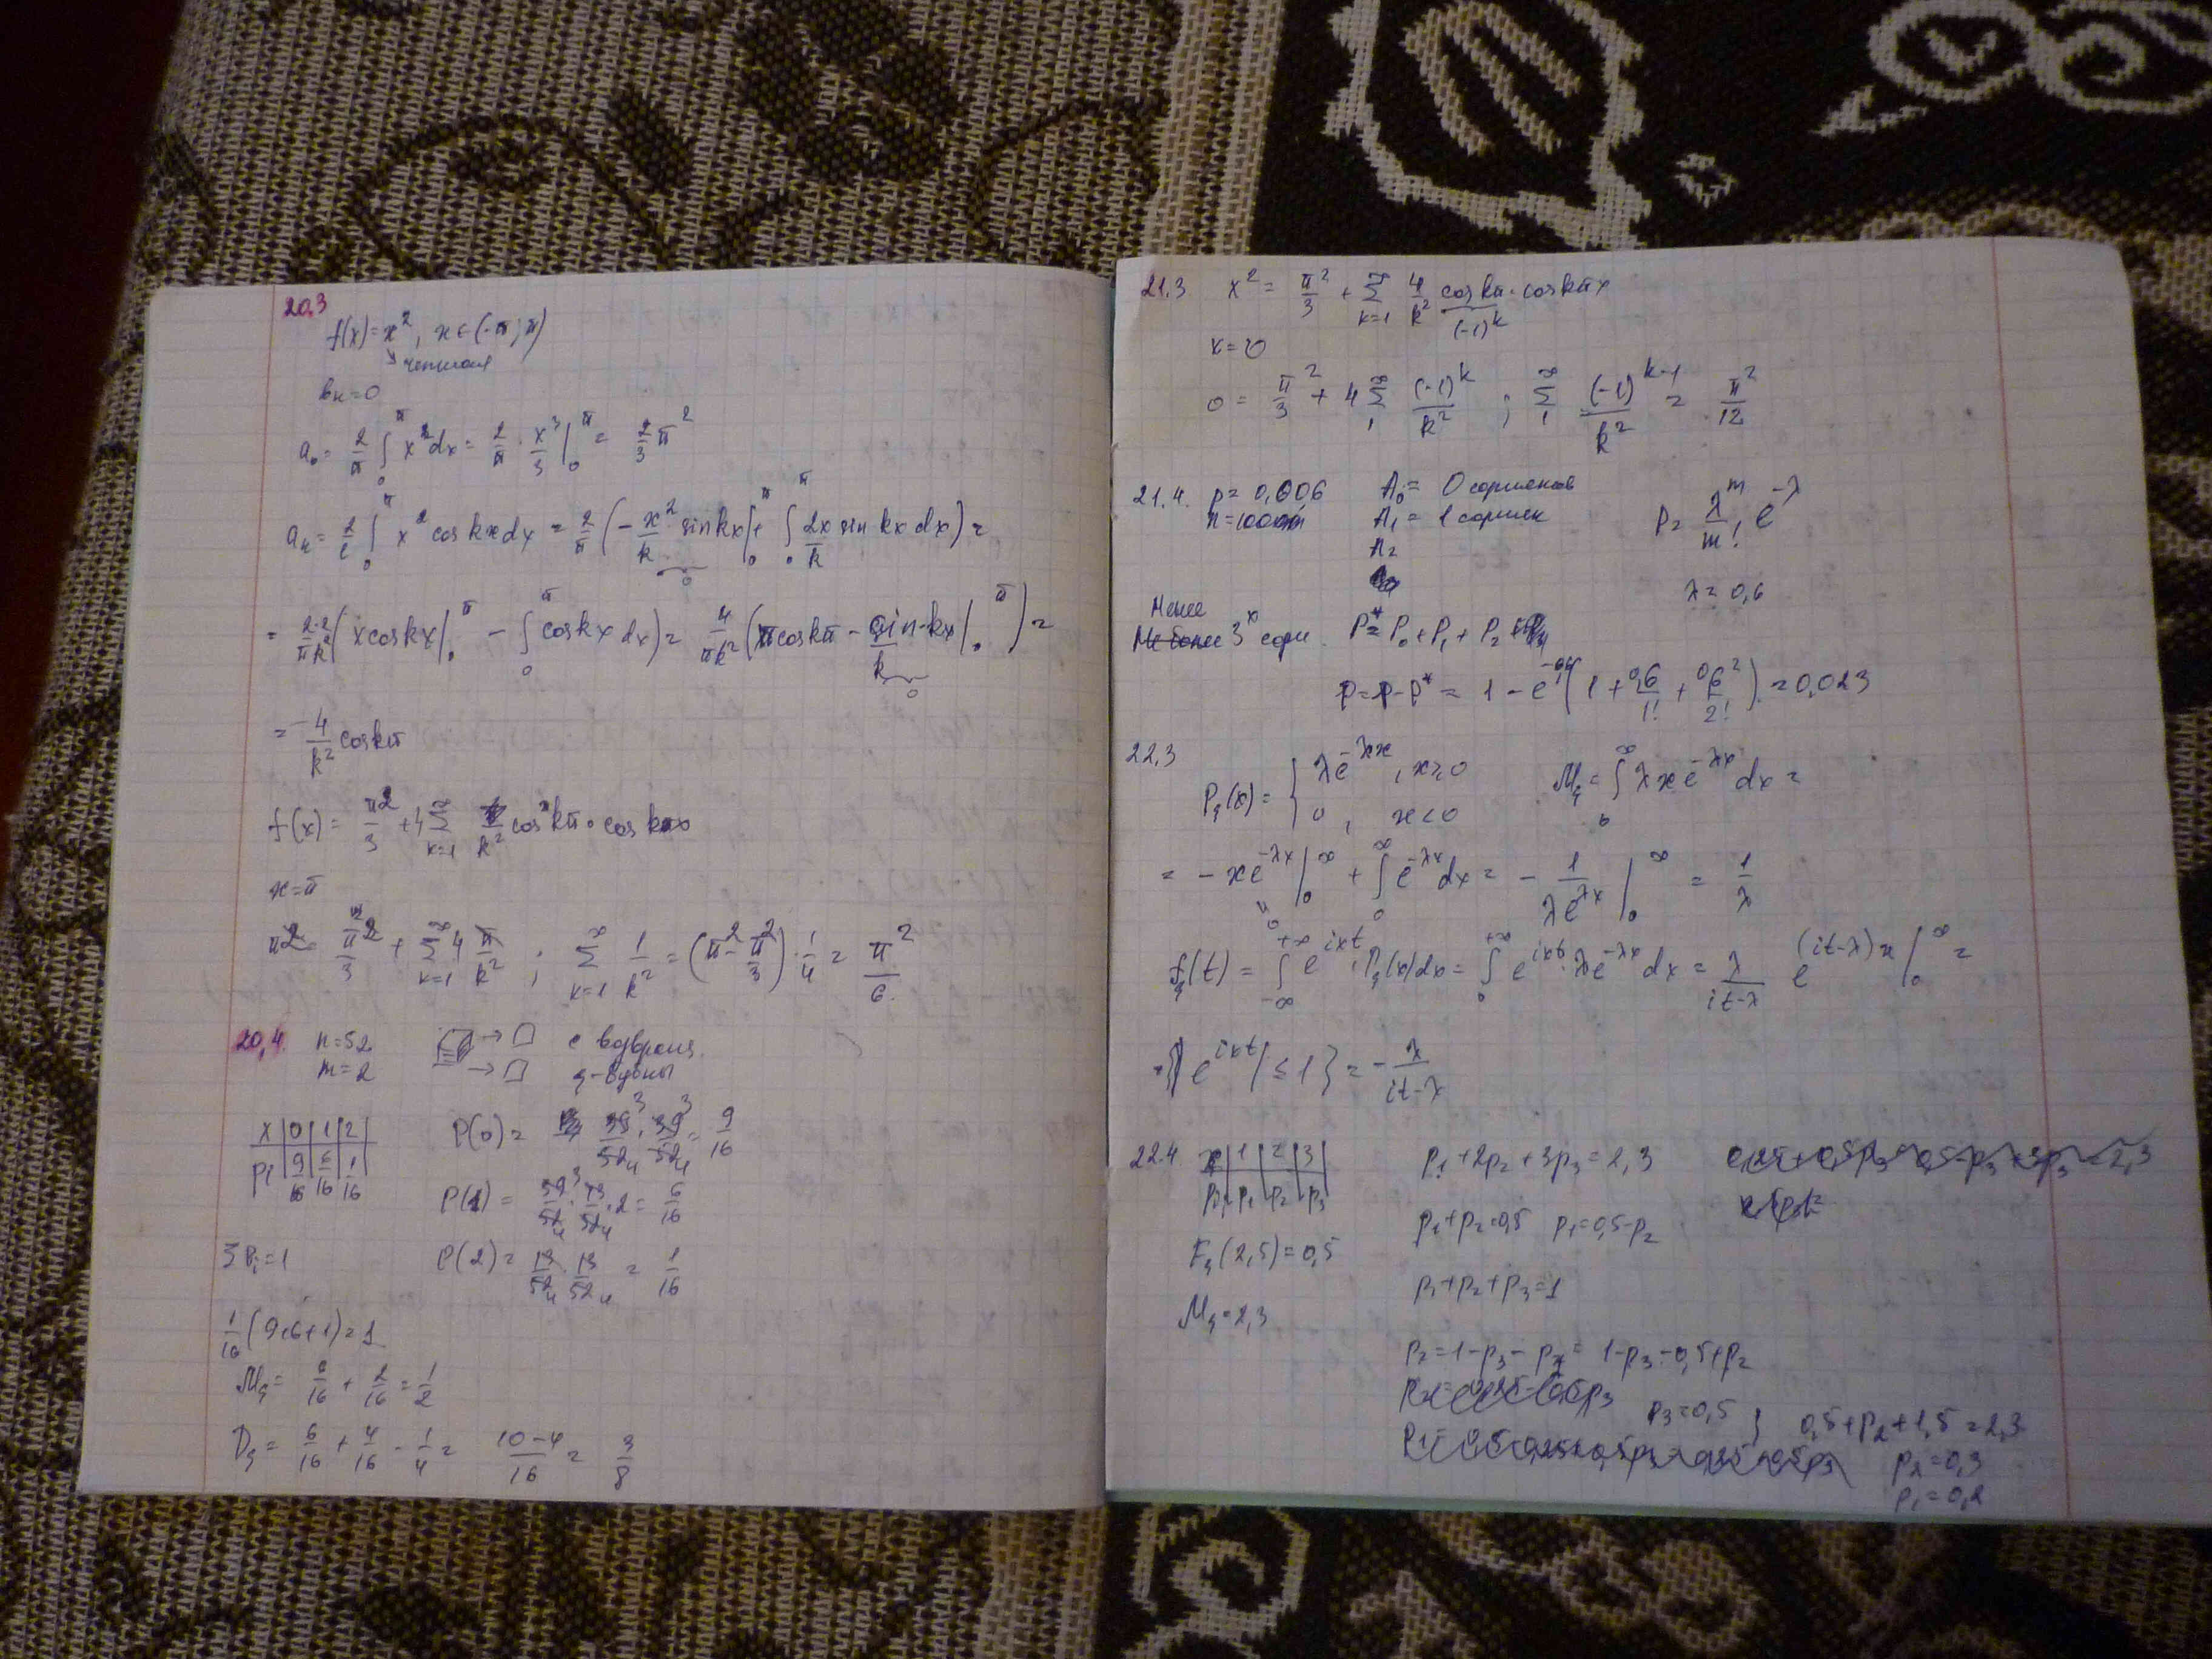 20,3
f(x)=x², x∈(-π; π)
↘ четная
bₖ=0
a₀= 2/π ∫₀^π x²dx = 2/π · x³/3 |₀^π = 2/3 π²
aₖ= 2/ℓ ∫₀^π x² cos kx dx = 2/π (-x²/k sin kx |₀^π + ∫₀^π 2x/k sin kx dx) =
= 2·2/πk² (x cos kx |₀^π - ∫₀^π cos kx dx) = 4/πk² (π cos kπ - sin kx/k |₀^π) =
= 4/k² cos kπ
f(x) = π²/3 + 4 ∑_{k=1}^∞ 1/k² cos kπ · cos kx
x=π
π² = π²/3 + ∑_{k=1}^∞ 4 1/k² ; ∑_{k=1}^∞ 1/k² = (π² - π²/3) · 1/4 = π²/6.
20,4. n=52 → с возвращ.
m=2 → ξ-бубны
x | 0 | 1 | 2
pi | 9/16 | 6/16 | 1/16
P(0) = 39/52 · 39/52 = 9/16
P(1) = 39/52 · 13/52 · 2 = 6/16
∑Pi=1
P(2) = 13/52 · 13/52 = 1/16
1/16 (9+6+1) = 1
Mξ = 6/16 + 2/16 = 1/2
Dξ = 6/16 + 4/16 - 1/4 = 10-4/16 = 3/8
21.3 x² = π²/3 + ∑_{k=1}^∞ 4/k² cos kπ · cos kπx
(-1)^k
x=0
0 = π²/3 + 4 ∑₁^∞ (-1)^k/k² ; ∑₁^∞ (-1)^{k-1}/k² = π²/12
21.4. p=0,006 A₀ = 0 сорняков
n=100 A₁ = 1 сорняк
P = λ^m/m! e^{-λ}
A₂
λ=0,6
Менее
Не более 3х сорн. P* = P₀ + P₁ + P₂
p=1-p* = 1 - e^{-0,6} (1 + 0,6/1! + 0,6²/2!) = 0,023
22,3
Pξ(x) = { λe^{-λx}, x≥0
0, x<0
Mξ = ∫₀^∞ λxe^{-λx} dx =
= -xe^{-λx} |₀^∞ + ∫₀^∞ e^{-λx} dx = - 1/λe^{λx} |₀^∞ = 1/λ
fξ(t) = ∫_{-∞}^{+∞} e^{ixt} · Pξ(x)dx = ∫₀^{+∞} e^{ixt} · λe^{-λx} dx = λ/(it-λ) e^{(it-λ)x} |₀^∞ =
={|e^{ixt}| ≤ 1} = - λ/(it-λ)
22.4 x | 1 | 2 | 3
pi | p₁ | p₂ | p₃
p₁+2p₂+3p₃=2,3
p₁+p₂=0,5 p₁=0,5-p₂
Fξ(2,5)=0,5
p₁+p₂+p₃=1
Mξ=2,3
p₂=1-p₃-p₁= 1-p₃-0,5+p₂
p₃=0,5 } 0,5+p₂+1,5=2,3
p₂=0,3
p₁=0,2